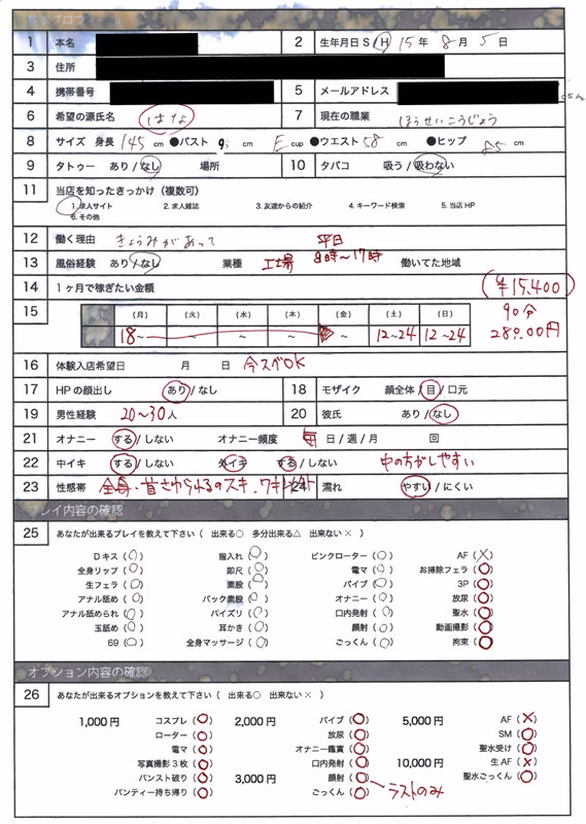 基本プロフィール
1 本名 2 生年月日 S / H 15 年 8 月 5 日
3 住所
4 携帯番号 5 メールアドレス
6 希望の源氏名 はな 7 現在の職業 ほうせいこうじょう
8 サイズ 身長 145 cm ●バスト cm E cup ●ウエスト 58 cm ●ヒップ 85 cm
9 タトゥー あり / なし 場所 10 タバコ 吸う / 吸わない
11 当店を知ったきっかけ（複数可）
1. 求人サイト 2. 求人雑誌 3. 友達からの紹介 4. キーワード検索 5. 当店HP
6. その他
12 働く理由 きょうみがあって 平日
13 風俗経験 あり / なし 業種 工場 8時～17時 働いてた地域
14 1ヶ月で稼ぎたい金額 (¥15,400)
15 (月) (火) (水) (木) (金) (土) (日) 90分
18～ ～ ～ ～ ～ 12～24 12～24 28000円
16 体験入店希望日 月 日 今スぐOK
17 HPの顔出し あり / なし 18 モザイク 顔全体 / 目 / 口元
19 男性経験 20～30人 20 彼氏 あり / なし
21 オナニー する / しない オナニー頻度 毎 日 / 週 / 月 回
22 中イキ する / しない 外イキ する / しない 中の方がしやすい
23 性感帯 全身・首さわられるのスキ、ワキ 24 濡れ やすい / にくい
プレイ内容の確認
25 あなたが出来るプレイを教えて下さい（ 出来る○ 多分出来る△ 出来ない× ）
Dキス（○） 指入れ（○） ピンクローター（○） AF（×）
全身リップ（○） 即尺（○） 電マ（○） お掃除フェラ（○）
生フェラ（○） 素股（○） バイブ（○） 3P（○）
アナル舐め（○） バック素股（○） オナニー（○） 放尿（○）
アナル舐められ（○） パイズリ（○） 口内発射（○） 聖水（○）
玉舐め（○） 耳かき（○） 顔射（○） 動画撮影（○）
69（○） 全身マッサージ（○） ごっくん（○） 拘束（○）
オプション内容の確認
26 あなたが出来るオプションを教えて下さい（ 出来る○ 出来ない× ）
1,000円 コスプレ（○） 2,000円 バイブ（○） 5,000円 AF（×）
ローター（○） 放尿（○） SM（○）
電マ（○） オナニー鑑賞（○） 聖水受け（○）
写真撮影3枚（○） 口内発射（○） 10,000円 生AF（×）
パンスト破り（○） 3,000円 顔射（○） 聖水ごっくん（○）
パンティー持ち帰り（○） ごっくん（○） ラストのみ